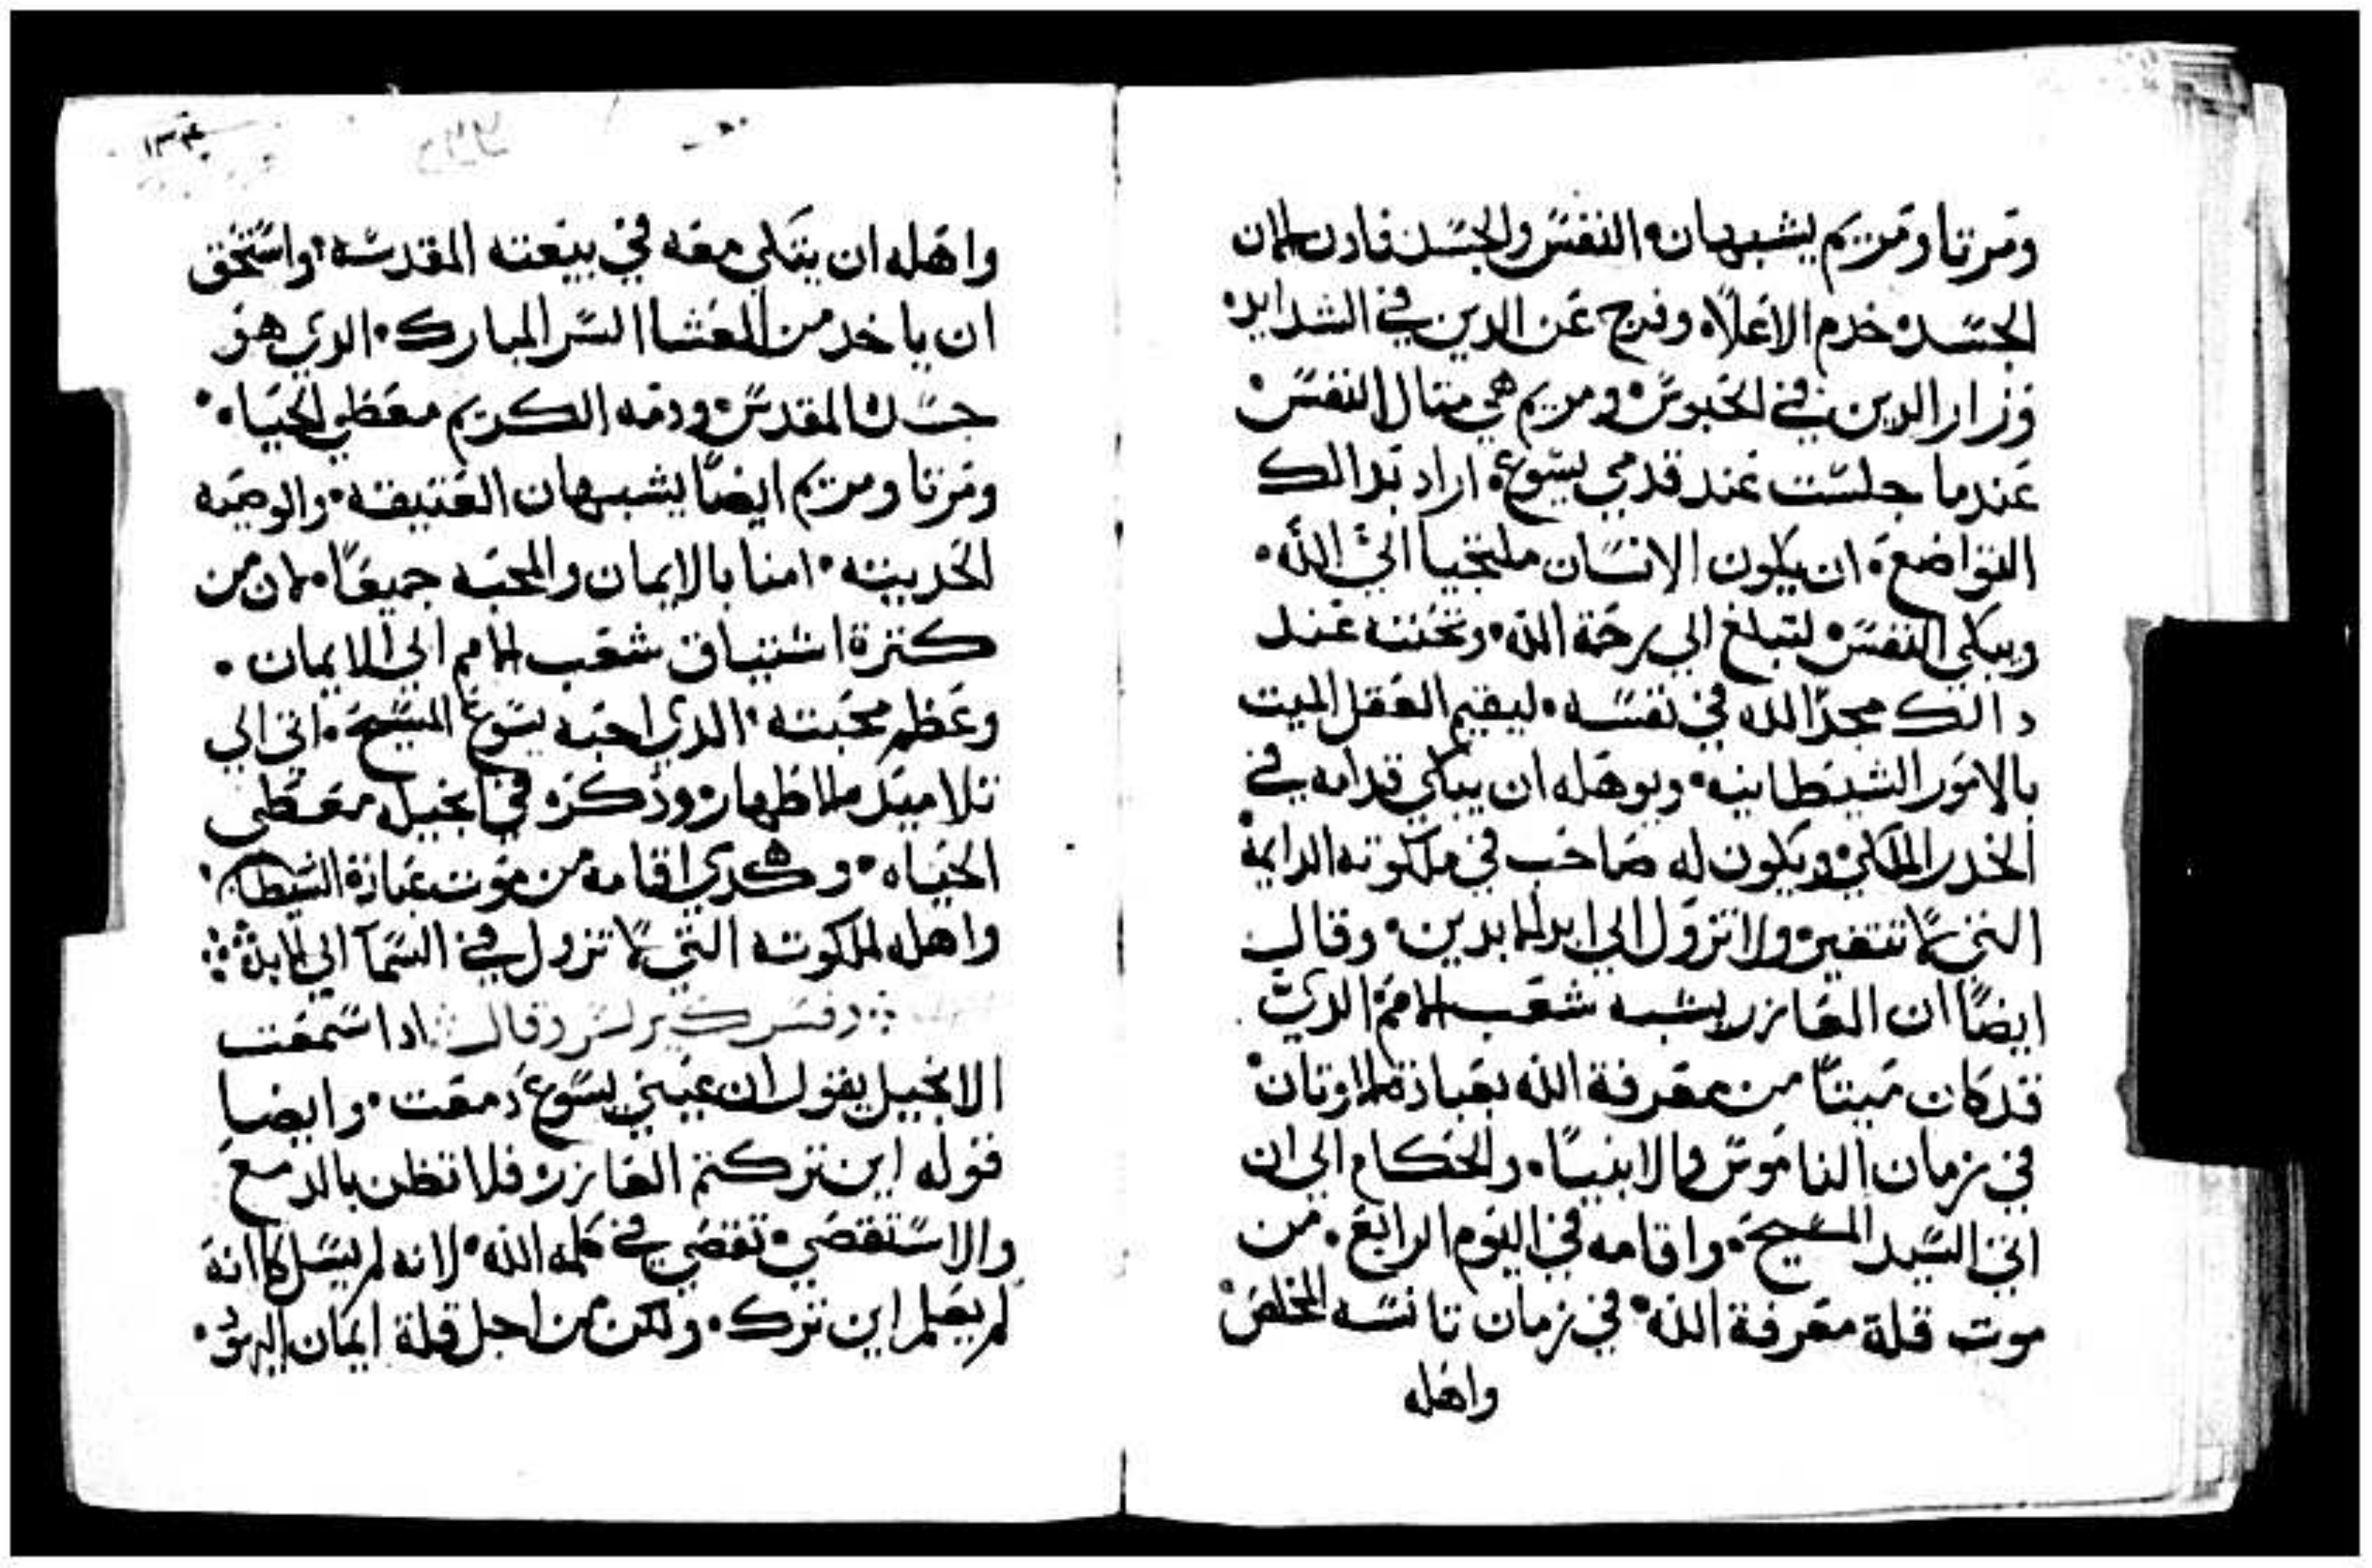 ومرتا ومريم يشبهان النفس والجسد فادا كان
الجسد خدم الاعلاه وفرج عن الدين في الشدايد
وزار الدين في الحبوس ومريم هي متال النفس
عندما جلست عند قدمي يسوع اراد بدالك
التواضع ان يكون الانسان ملتجيا الي الله
ويبكي النفس لتبلغ الي رحمة الله وتحننه عند
دالك مجد الله في نفسه ليقيم العقل الميت
بالامور الشيطانيه ويوهله ان يتكي قدامه في
الخدر الملكي ويكون له صاحب في ملكوته الدايمه
التي لا تتغير ولا تزول الي ابد الابدين وقال
ايضا ان العازر يشبه شعب الامم الدي
قد كان ميتا من معرفة الله بعبادة الاوتان
في زمان الناموس والانبيا والحكام الي ان
اتي السيد المسيح واقامه في اليوم الرابع من
موت قلة معرفة الله في زمان تانسه المخلص
واهله
١٣٤
واهله ان يتكي معه في بيعته المقدسه واستحق
ان ياخد من العشا السر المبارك الدي هو
جسده المقدس ودمه الكريم معطي الحياه
ومرتا ومريم ايضا يشبهان العتيقه والوصيه
الحديته امنا بالايمان والمحبه جميعا لان من
كترة اشتياق شعب الامم الي الايمان
وعظم محبته الدي احبه يسوع المسيح اتي الي
تلاميده الاطهار ودكره في انجيله معطي
الحياه وهكدي اقامه من موت عبادة الشيطان
واهله لملكوته التي لا تزول في السما الي الابد
وفسر كيرلس وقال ادا سمعت
الانجيل يقول ان عيني يسوع دمعت وايضا
قوله اين تركتم العازر فلا تظن بالدمع
والاستقصي تقصي في كلمه الله لانه لم يسل كانه
لم يعلم اين ترك ولكن من اجل قلة ايمان اليهود